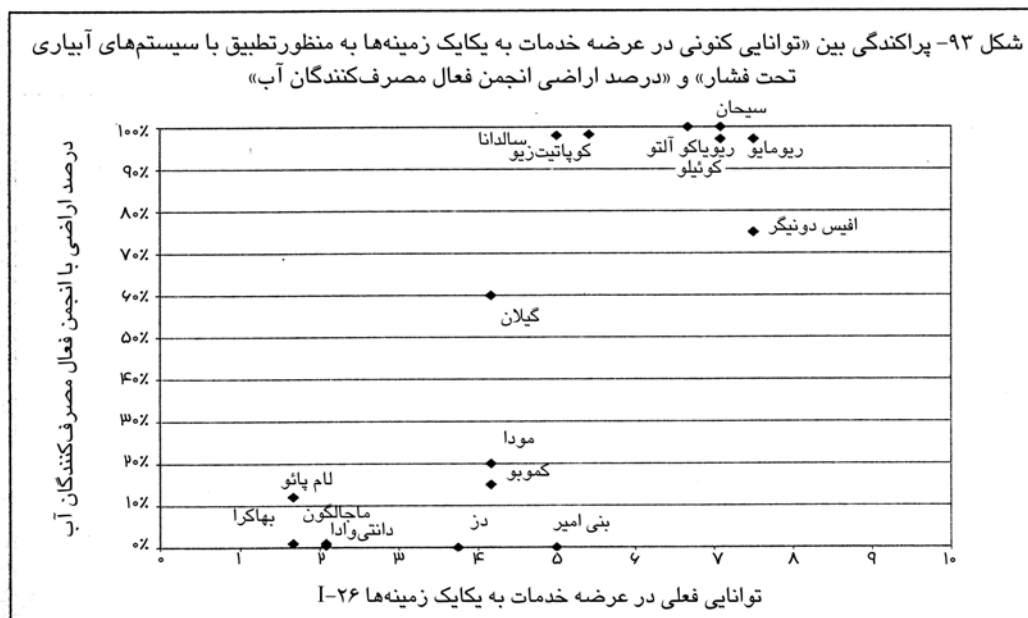 شکل ۹۳- پراکندگی بین «توانایی کنونی در عرضه خدمات به یکایک زمینه‌ها به منظورتطبیق با سیستم‌های آبیاری
تحت فشار» و «درصد اراضی انجمن فعال مصرف‌کنندگان آب»
درصد اراضی با انجمن فعال مصرف‌کنندگان آب
سیحان
۱۰۰٪
سالدانا
کوپاتیت‌زیو
ریویاکو آلتو
ریومایو
کوئیلو
۹۰٪
۸۰٪
افیس دونیگر
۷۰٪
۶۰٪
گیلان
۵۰٪
۴۰٪
۳۰٪
مودا
۲۰٪
کموبو
لام پائو
۱۰٪
بهاکرا
ماجالگون
دانتی‌وادا
دز
بنی امیر
۰٪
۰ ۱ ۲ ۳ ۴ ۵ ۶ ۷ ۸ ۹ ۱۰
توانایی فعلی در عرضه خدمات به یکایک زمینه‌ها I-۲۶